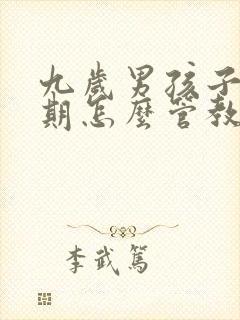 九歲男孩子
期怎麼管教
李武篤